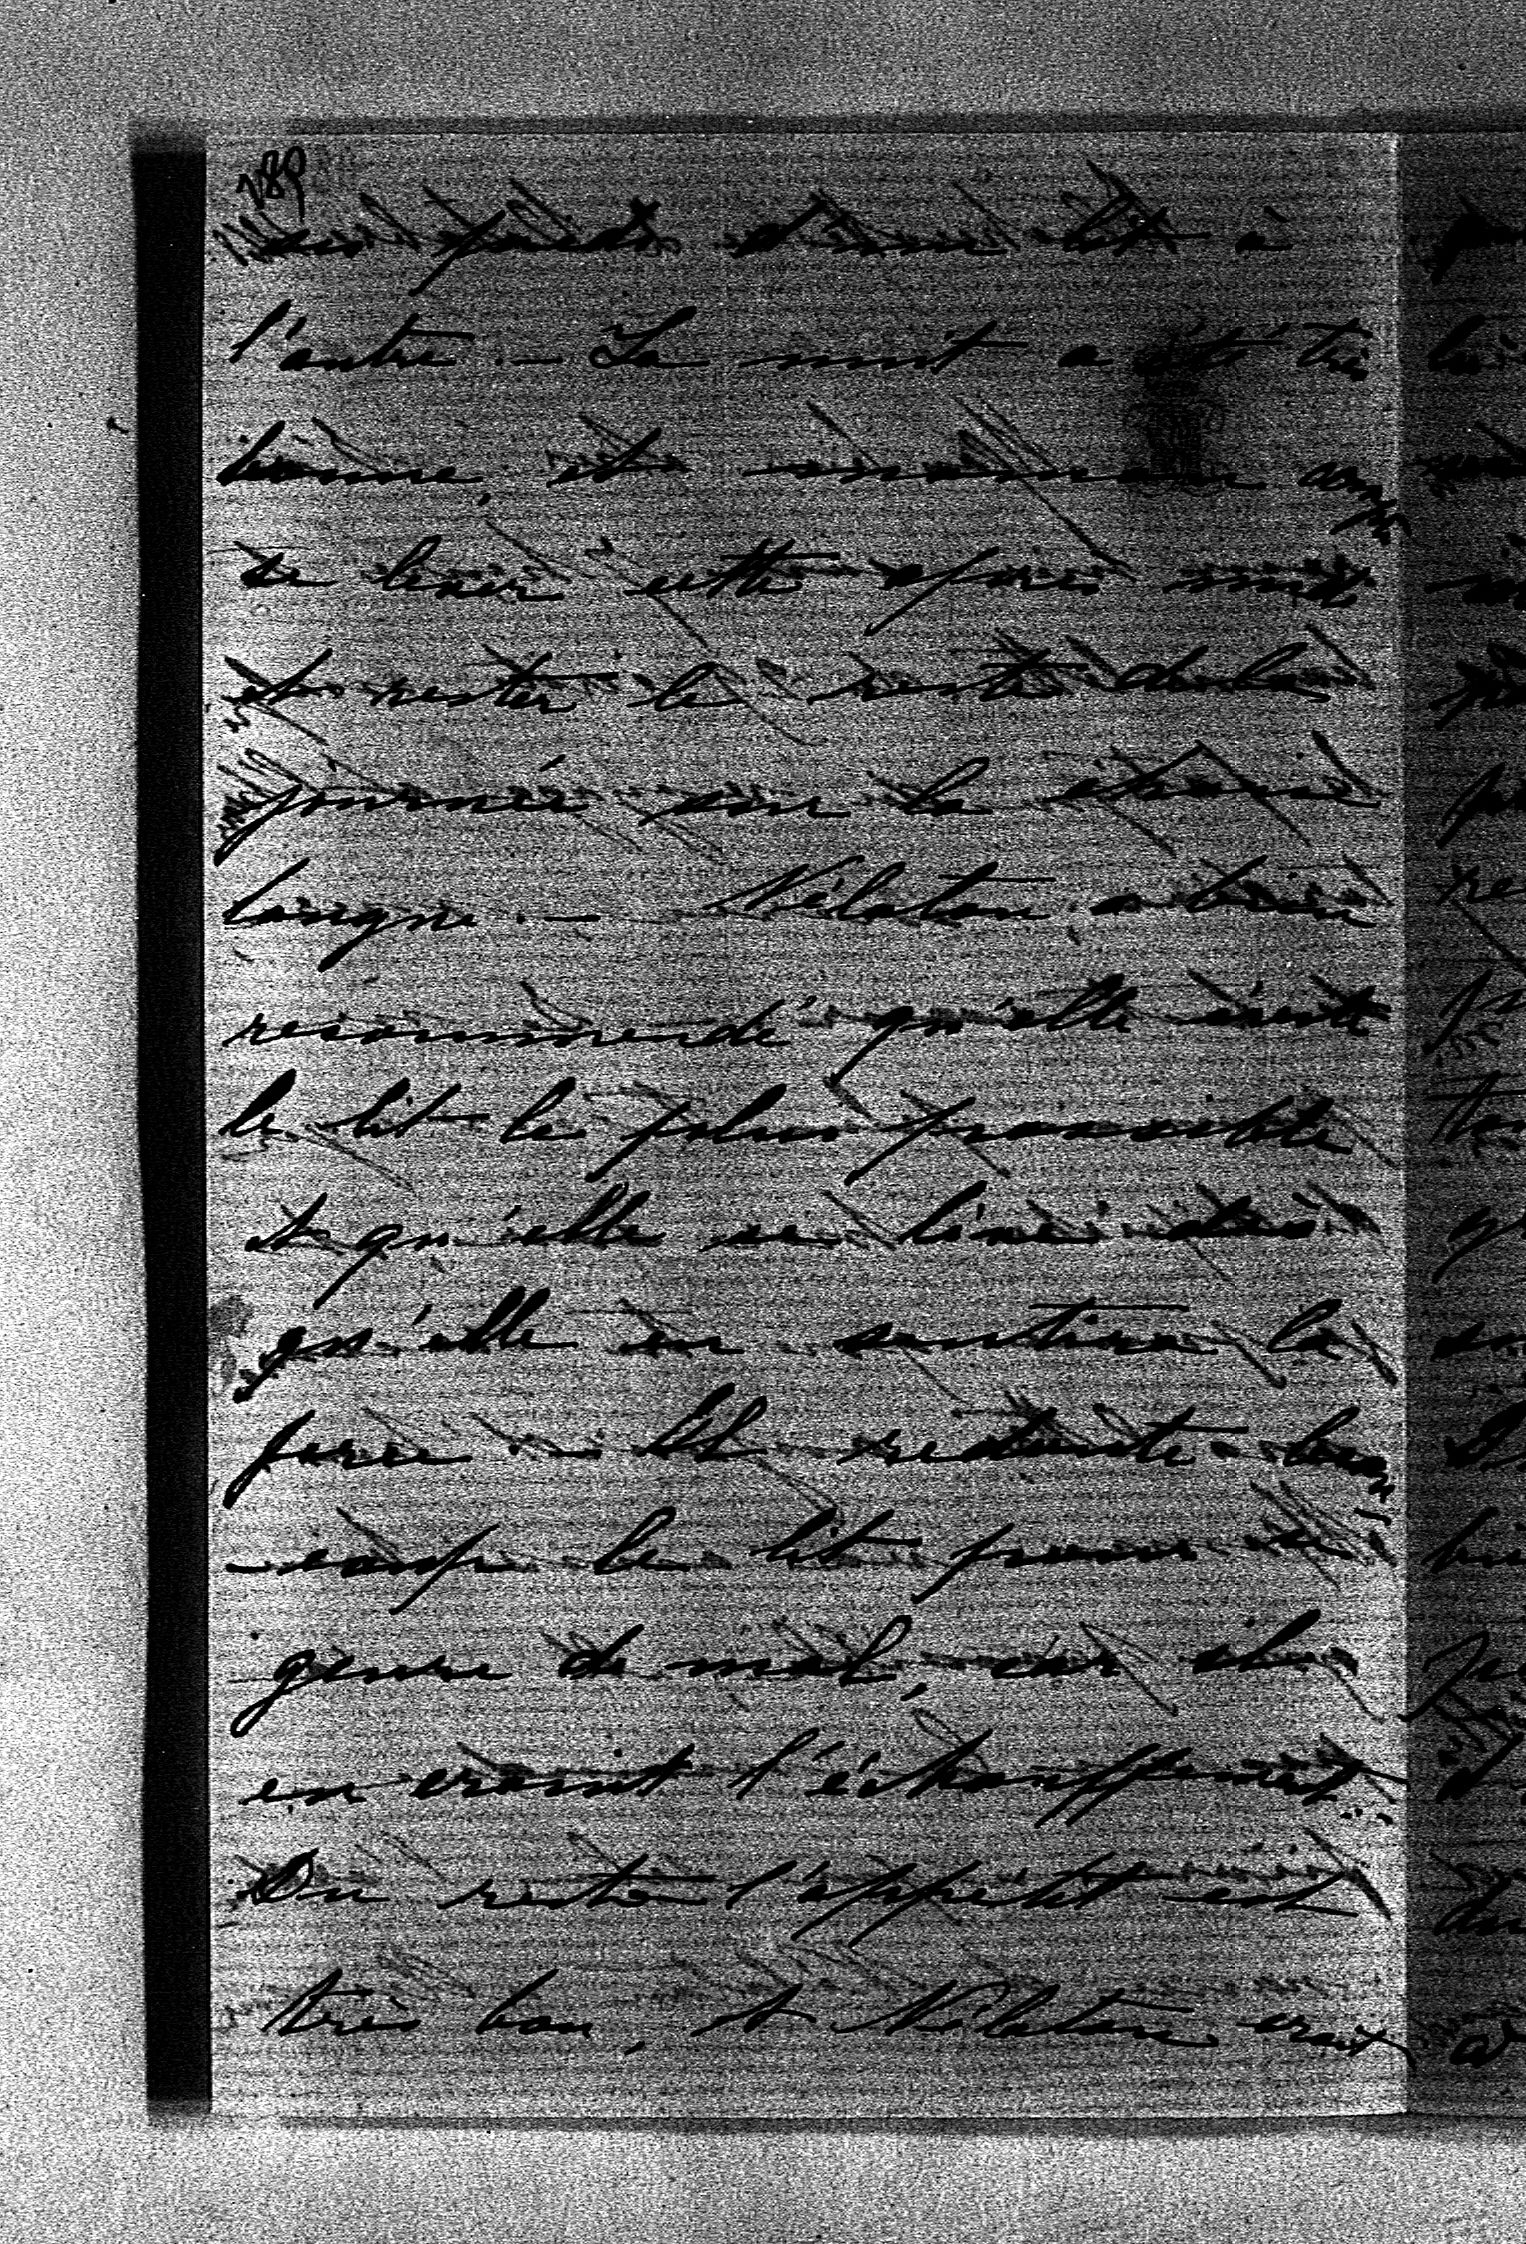 189
ses pieds d'un lit à
l'autre. — La nuit a été très
bonne, et maman compte
se lever cette après midi
et rester le reste de la
journée sur la chaise
longue. — Nélaton a bien
recommandé qu'elle évite
le lit le plus possible
et qu'elle se lève dès
qu'elle en sentira la
force — Il redoute beau
-coup le lit pour ce
genre de mal, car il
en craint l'échauffement.
Du reste l'appétit est
très bon, et Nélaton croit